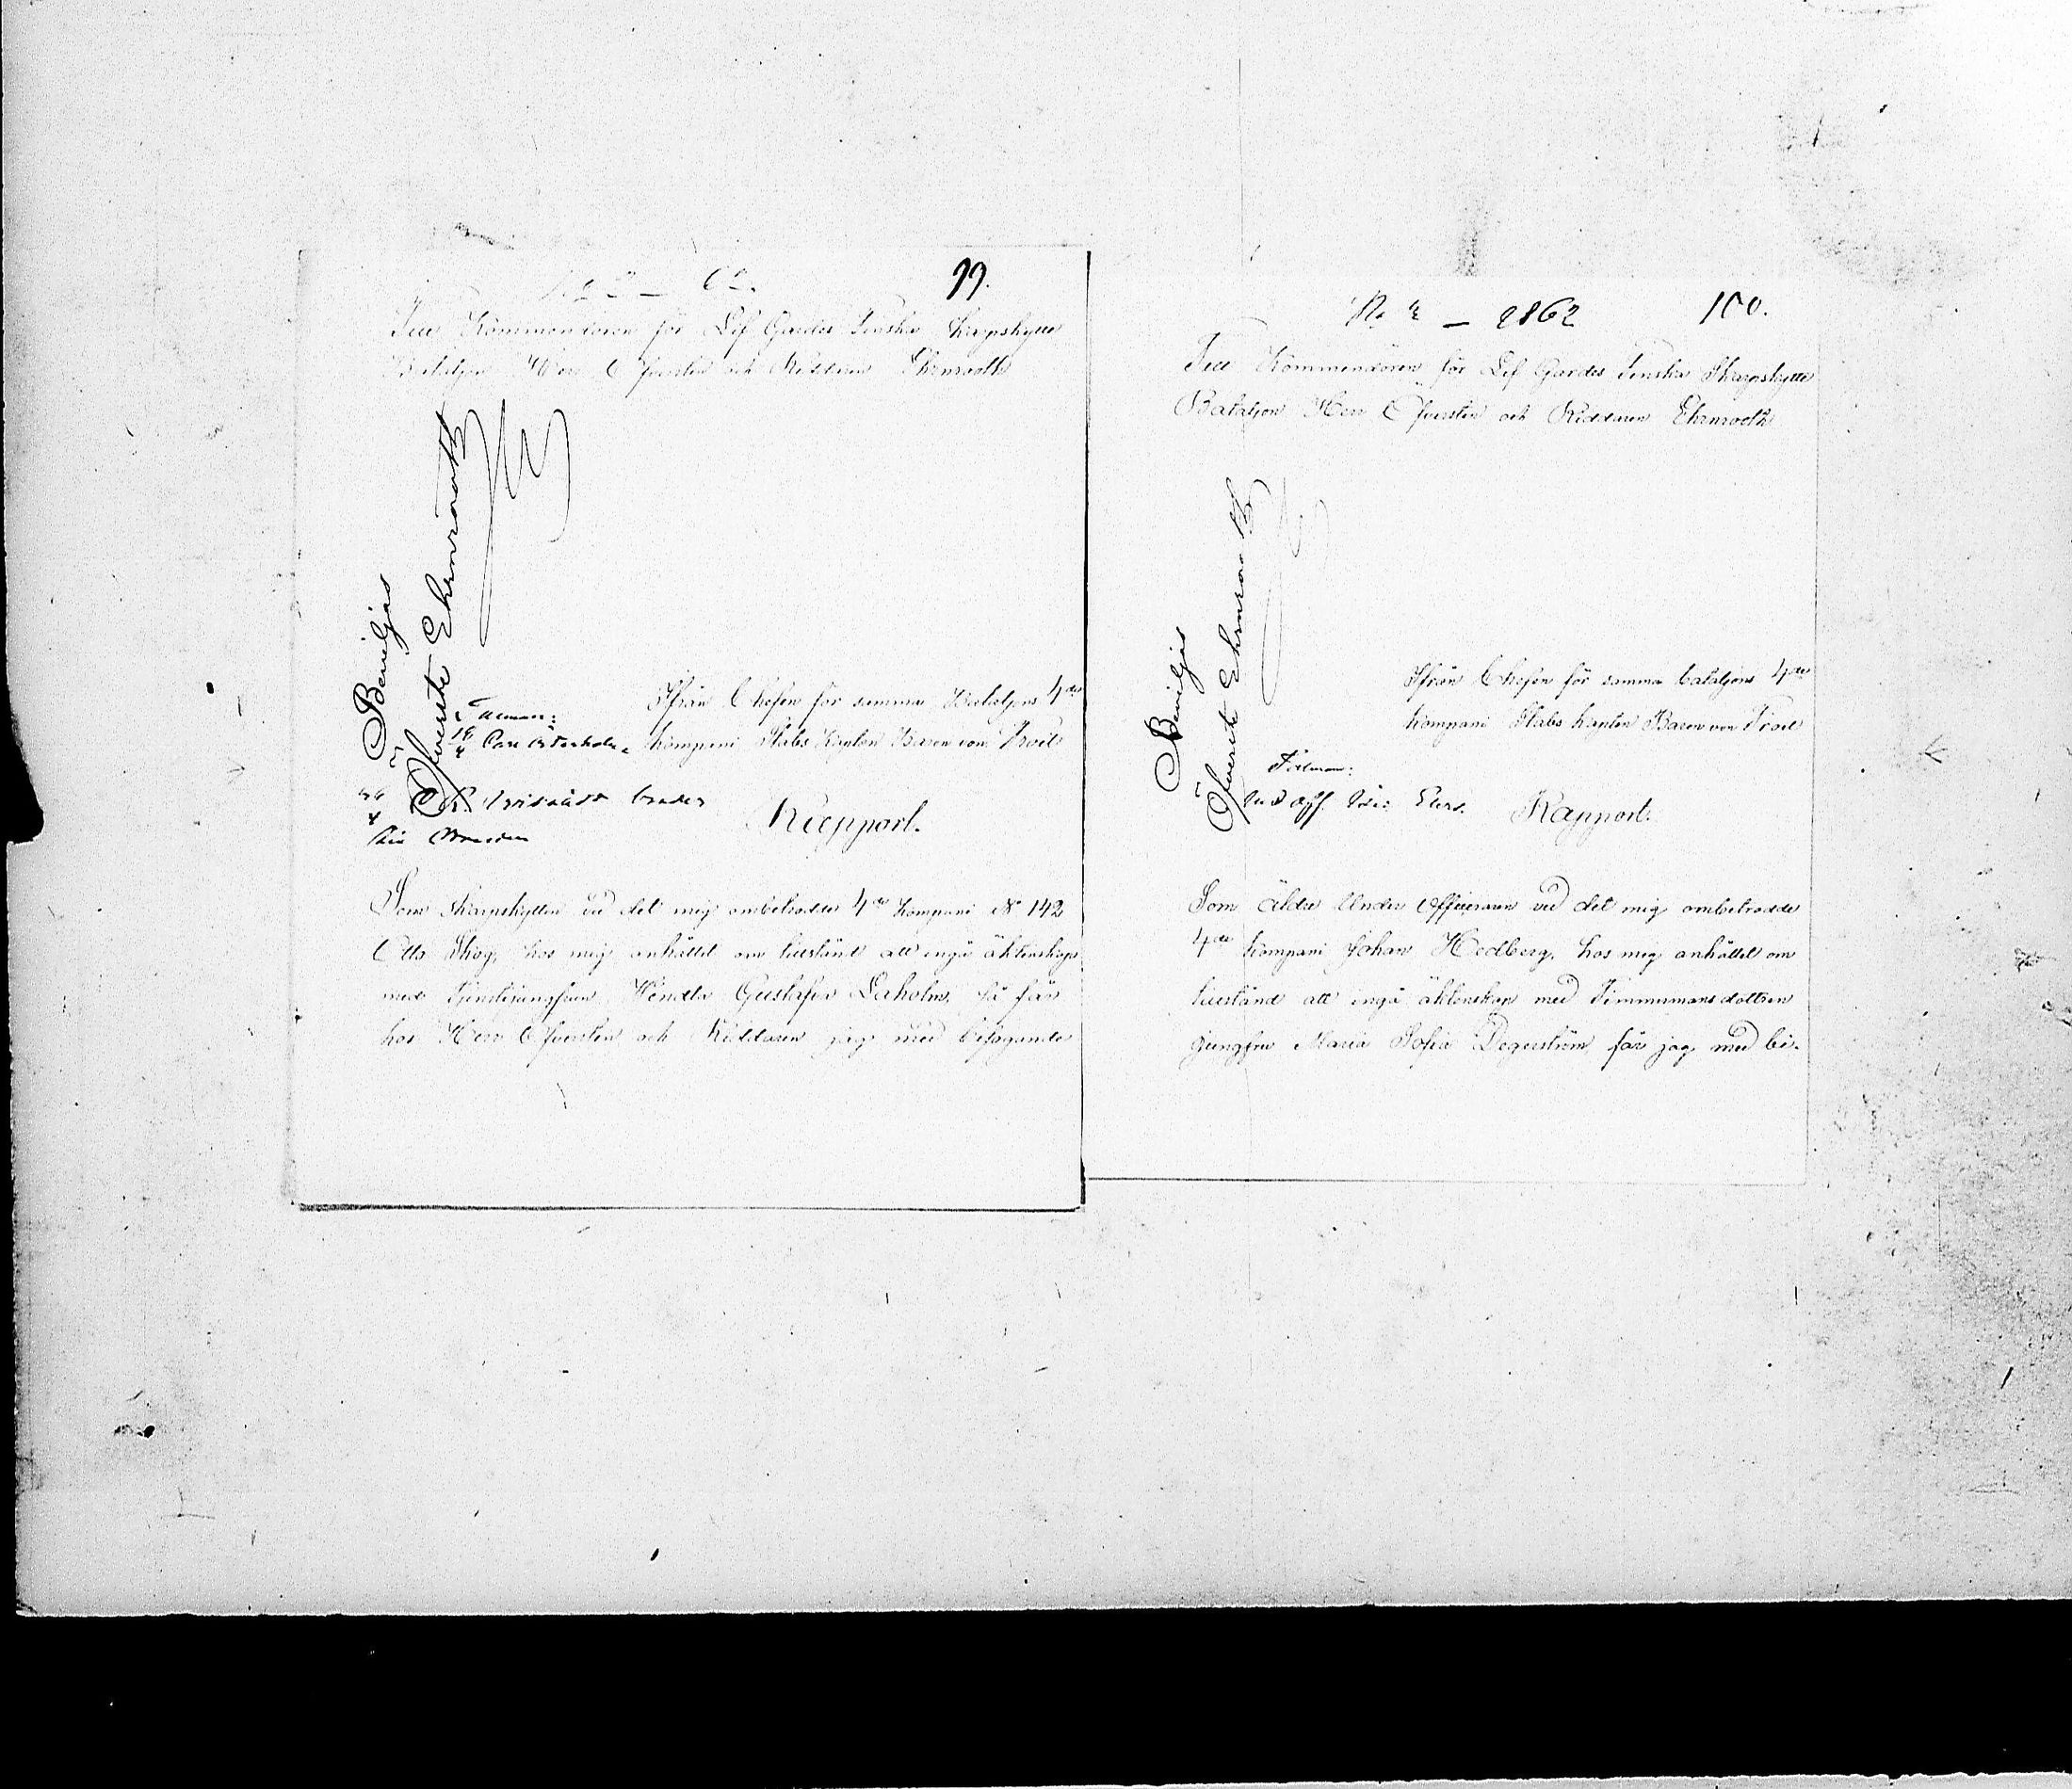 99.
Till Kommendören för Lif Gardes Finska Skarpskytte
Bataljon Herr Öfversten och Riddaren Ehrnrooth
Beviljas
Öfverste Ehrnrooth
Ifrån Chefen för samma Bataljons 4de
Kompani Stabs Kapten Baron von Troil
Rapport.
Som skarpskytten vid det mig ombetrodde 4de Kompani No 142
Otto Skog, hos mig anhållit om tillstånd att ingå äktenskap
med tjenstejungfrun Hendla Gustafva Laholm, så får
hos Herr Öfversten och Riddaren jag med bifogande
100.
2862
Till Kommendören för Lif Gardes Finska Skarpskytte
Bataljon Herr Öfversten och Riddaren Ehrnrooth
Beviljas
Öfverste Ehrnrooth
Ifrån Chefen för samma bataljons 4de
Kompani Stabs Kapten Baron von Troil
Rapport.
Som äldre Under Officeraren vid det mig ombetrodde
4de Kompani Johan Hedberg, hos mig anhållit om
tillstånd att ingå äktenskap med Timmermansdottren
jungfru Maria Sofia Degerström får jag med bi-